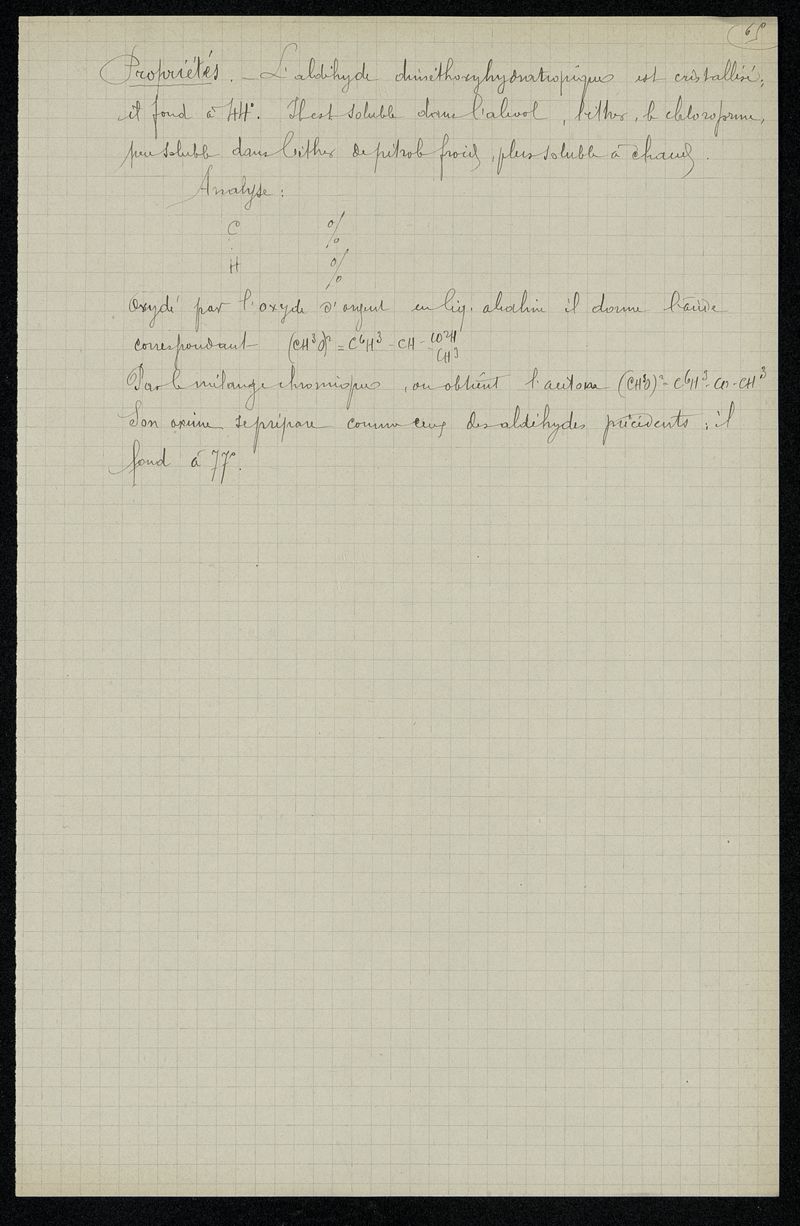 65
Propriétés. — L'aldéhyde diméthoxyhydratropique est cristallisé;
il fond à 44°. Il est soluble dans l'alcool, l'éther, le chloroforme,
peu soluble dans l'éther de pétrole froid, plus soluble à chaud.
Analyse :
C %
H %
Oxydé par l'oxyde d'argent en liq. alcaline il donne l'acide
correspondant (CH³O)² = C⁶H³ - CH - CO²H
CH³
Par le mélange chromique, on obtient l'acétone (CH³O)² = C⁶H³ - CO - CH³
Son oxime se prépare comme ceux des aldéhydes précédents ; il
fond à 77°.